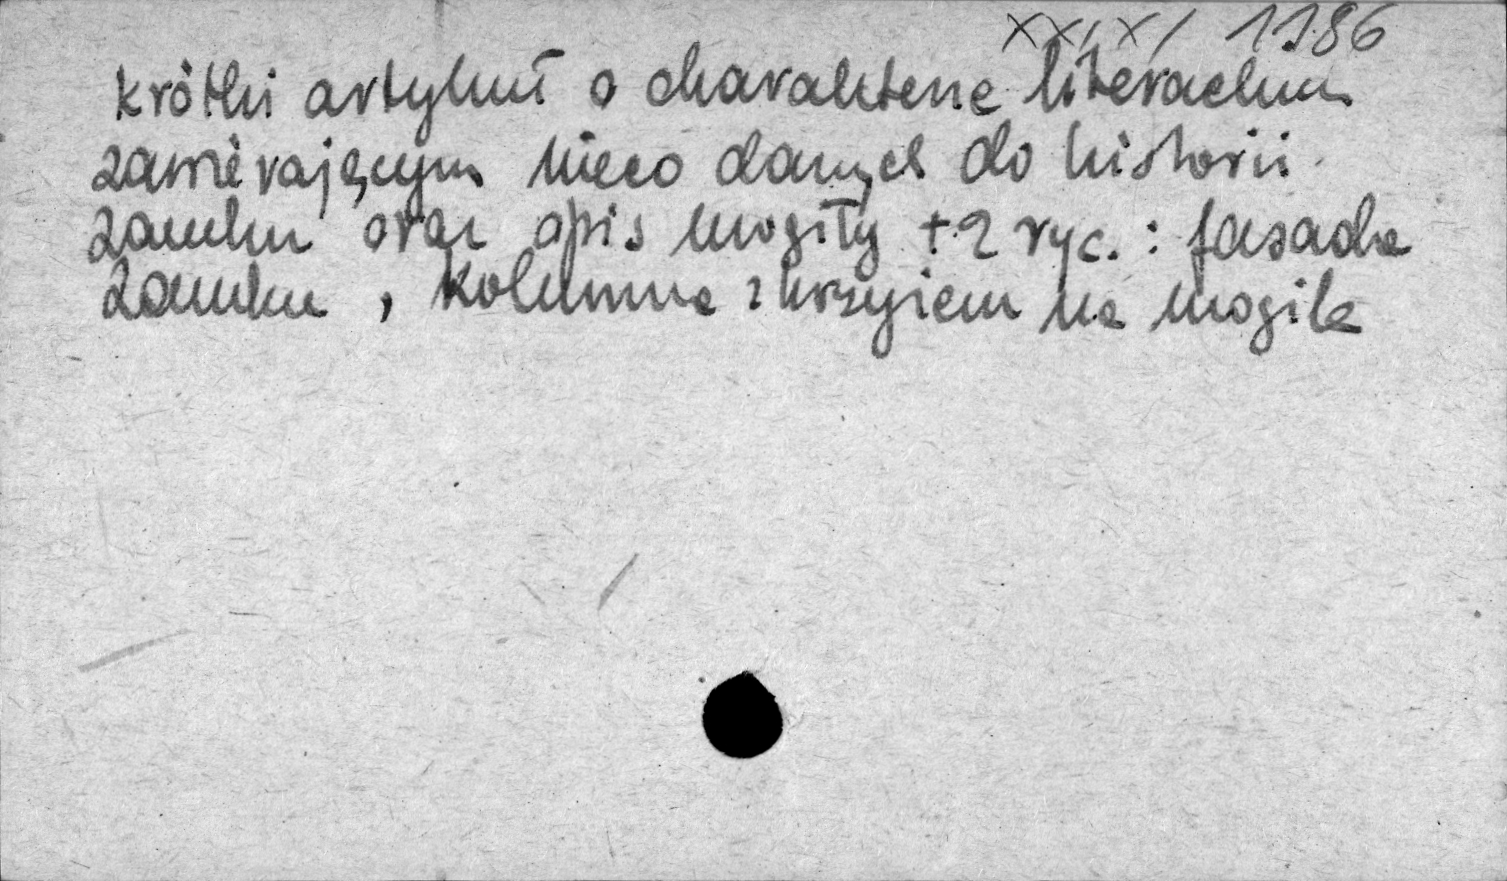 XX/X/ 1186
krótki artykuł o charakterze literackim
zawierającym nieco danych do historii
zamku oraz opis mogiły + 2 ryc. : fasada
zamku , kolumna z krzyżem na mogile